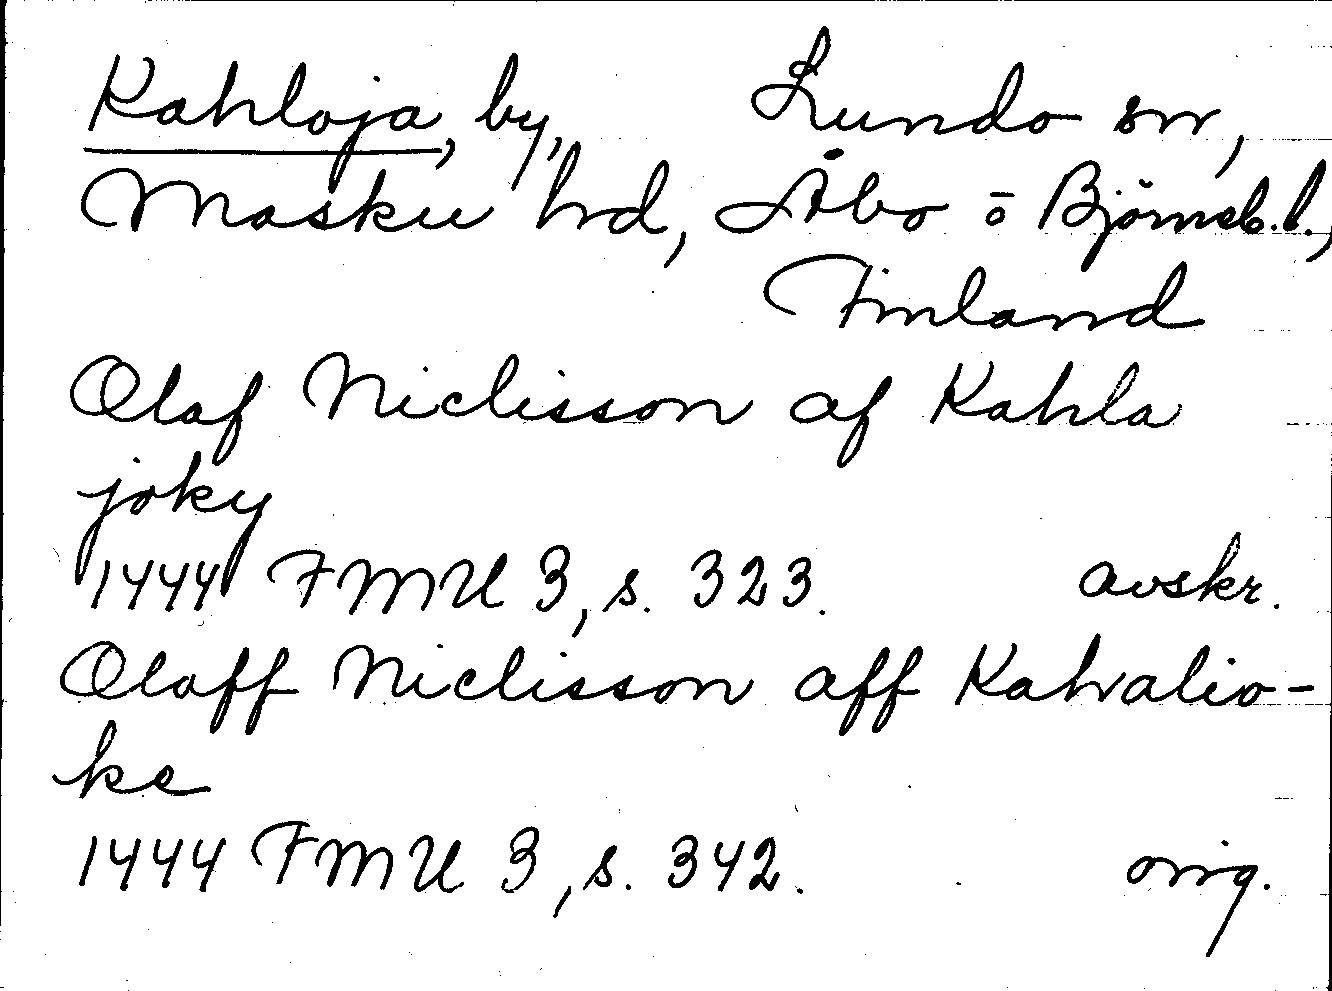 Kahloja, by, Lundo sn,
Masku hd, Åbo o Björneb.l.,
Finland
Olaf Niclisson af Kahla
joky
1444 FMU 3, s. 323. avskr.
Olaff Niclisson aff Kahalio-
ke
1444 FMU 3, s. 342. orig.